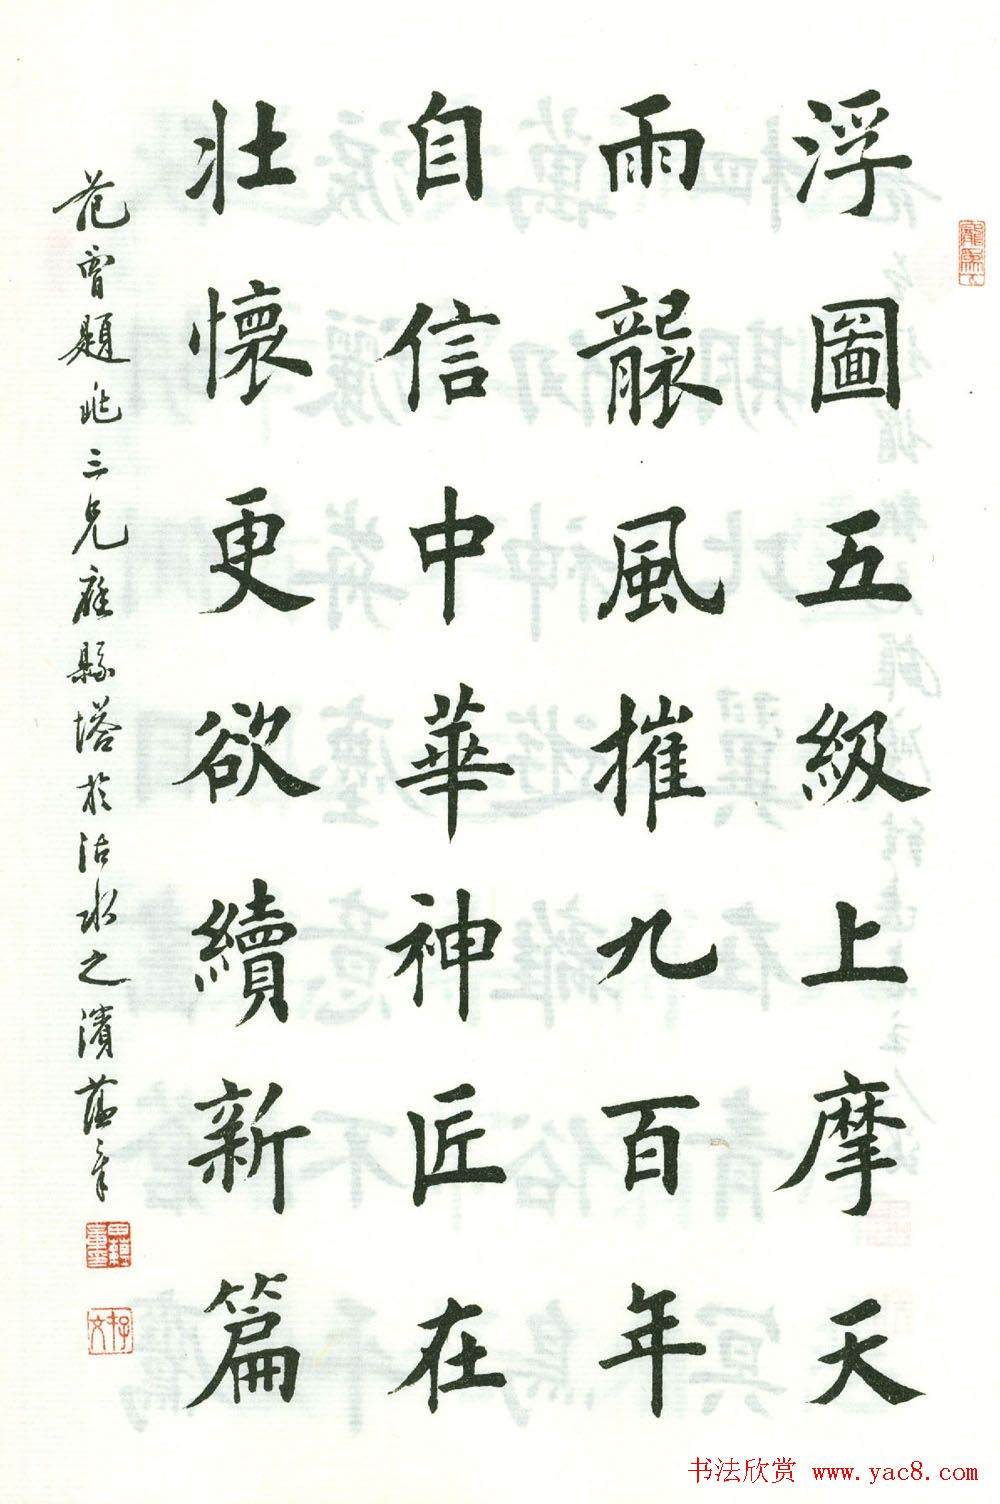 浮圖五級上摩天
雨襲風摧九百年
自信中華神匠在
壯懷更欲續新篇
范曾題兆三兄應縣塔於沽水之濱
书法欣赏 www.yac8.com